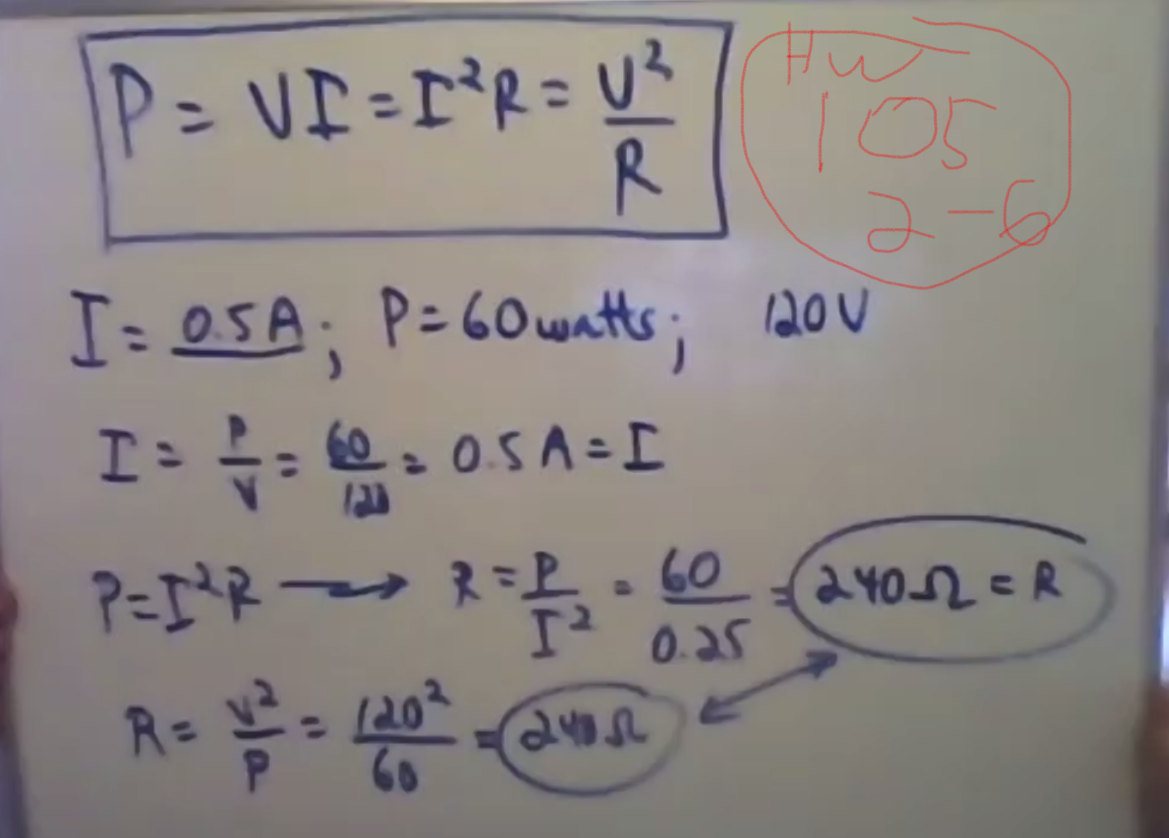 P = VI = I²R = V²/R
HW
105
2-6
I = 0.5A; P = 60watts; 120V
I = P/V = 60/120 = 0.5A = I
P = I²R → R = P/I² = 60/0.25 = 240Ω = R
R = V²/P = 120²/60 = 240Ω